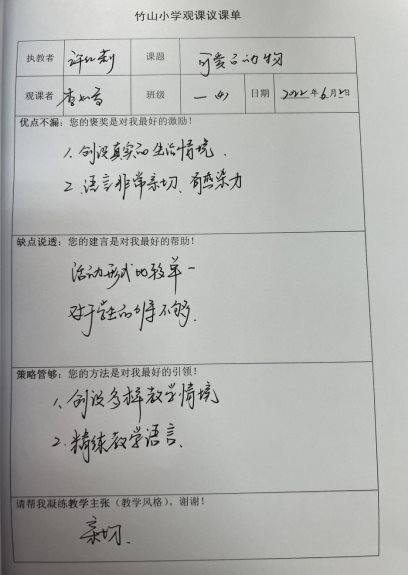 竹山小学观课议课单
执教者 许 课题 可爱的动物
观课者 李 班级 一（4） 日期 2022年6月2日
优点不漏：您的褒奖是对我最好的激励！
1. 创设真实的生活情境.
2. 语言非常亲切、有感染力
缺点说透：您的建言是对我最好的帮助！
活动形式比较单一
对于学生的引导不够.
策略管够：您的方法是对我最好的引领！
1、创设多样教学情境
2.精练教学语言、
请帮我凝练教学主张（教学风格），谢谢！
亲切.